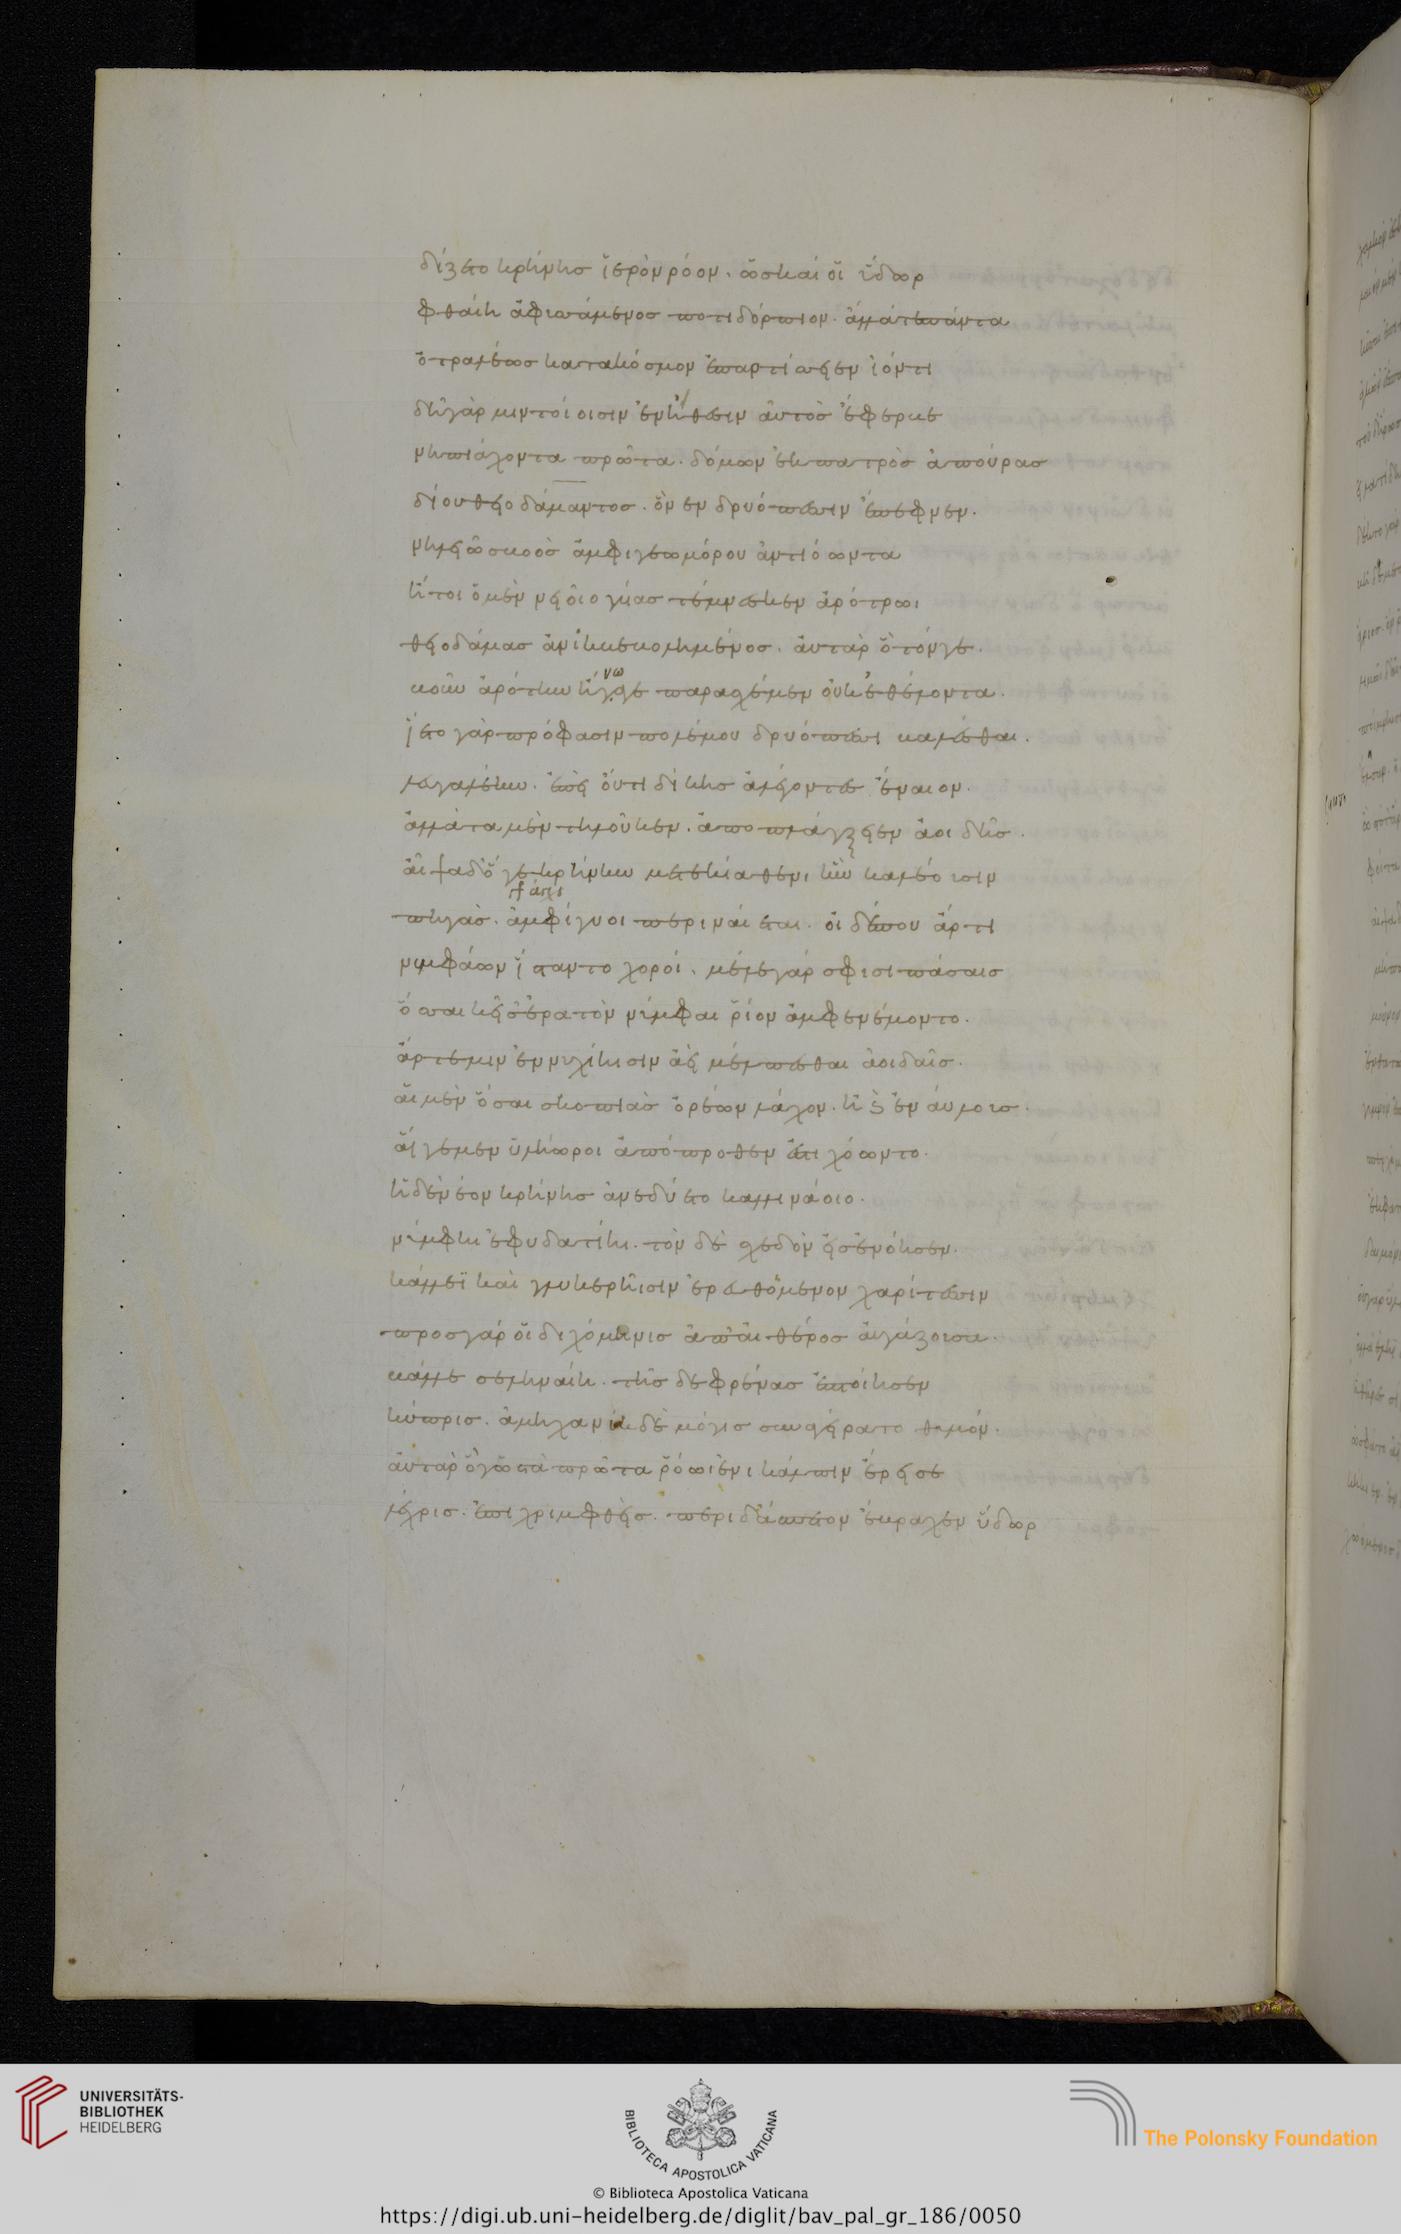 δίζετο κρήνησ ἱερὸν ρόον. ὥσκαί οἱ ὕδωρ
φθαίη ἀφυσσάμενοσ ποτιδόρπιον. ἀλλάτεπάντα
ὀτραλέωσ κατακόσμον ἐπαρτίσσειεν ἰόντι
δὴγὰρ μιντοίοισιν ἐνἤθεσιν αὐτὸσ ἔφερβε
νηπιάχοντα πρῶτα. δόμων ἐκπατρὸσ ἀπούρασ
δίουθειοδάμαντοσ. ὃν ἐν δρυόπεσσιν ἔπεφνεν.
νηλειῶσ βοὸσ ἀμφιγεωμόρου ἀντιόωντα
ἤτοι ὁμὲν νειοῖο γύασ τέμνεσκεν ἀρότρωι
θειοδάμασ ἀνίηι βεβολημένοσ. αὐτὰρ ὁτόνγε.
βοῦν ἀρότην ἤνωγε παρασχέμεν οὐκἐθέλοντα.
ἵετο γὰρ πρόφασιν πολέμου δρυόπεσσι βαλέσθαι.
λευγαλέην. ἐπεὶ οὔτι δίκησ ἀλέγοντεσ ἔναιον.
ἀλλὰταμὲν τηλοῦκεν. ἀποπλάγξειεν ἀοιδῆσ.
αἶψαδὅγε κρήνην μετεκίαθεν, ἣν καλέουσιν
πηγὰσ. ἀμφίγυοι περιναιέται. οἱ δέπου ἄρτι
νυμφάων ἵσταντο χοροί. μέλεγάρ σφισι πάσαισ
ὅσσαι κεῖσἐρατὸν νύμφαι ῥίον ἀμφενέμοντο.
ἄρτεμιν ἐννυχίηισιν ἀεὶ μέλπεσθαι ἀοιδαῖσ.
αἱμὲν ὅσαι σκοπιὰσ ὀρέων λάχον. ἢ καὶ ἐναύλοισ.
αἵγεμεν ὑλήωροι ἀπόπροθεν ἐστιχόωντο.
ἡδὲνέον κρήνησ ἀνεδύετο καλλινάοιο.
νύμφη ἐφυδατίη. τὸν δὲ σχεδὸν εἰσἐνόησεν.
κάλλεϊ καὶ γλυκερῆισιν ἐρευθόμενον χαρίτεσσιν
προσγάρ οἱ διχόμηνισ ἀπ᾽αἰθέροσ αὐγάζουσα.
βάλλε σεληναίη. τῆσ δεφρένασ ἐπτοίησεν
κύπρισ. ἀμηχανίη δὲ μόγισ συναγείρατο θυμόν.
αὐτὰρ ὅγὡστὰπρῶτα ῥόωιἔνι κάλπιν ἔρεισε
λέχρισ. ἐπιχριμφθεὶσ. περιδἄσπετον ἔβραχεν ὕδωρ
UNIVERSITÄTS-
BIBLIOTHEK
HEIDELBERG
BIBLIOTECA APOSTOLICA VATICANA
The Polonsky Foundation
© Biblioteca Apostolica Vaticana
https://digi.ub.uni-heidelberg.de/diglit/bav_pal_gr_186/0050